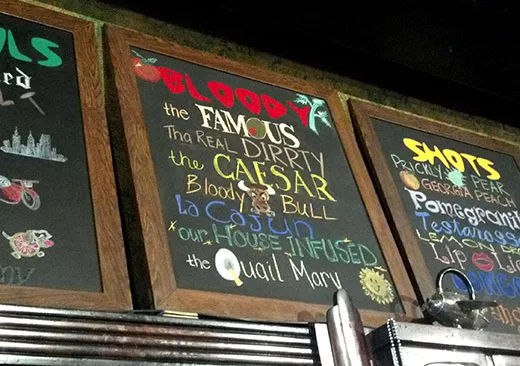 OLS
BLOODY
the FAMOUS
Tha REAL DIRRTY
the CAESAR
Bloody BULL
La CAJUN
our HOUSE INFUSED
the Quail Mary
SHOTS
PRICKLY PEAR
GEORGIA PEACH
LEMON
Lip